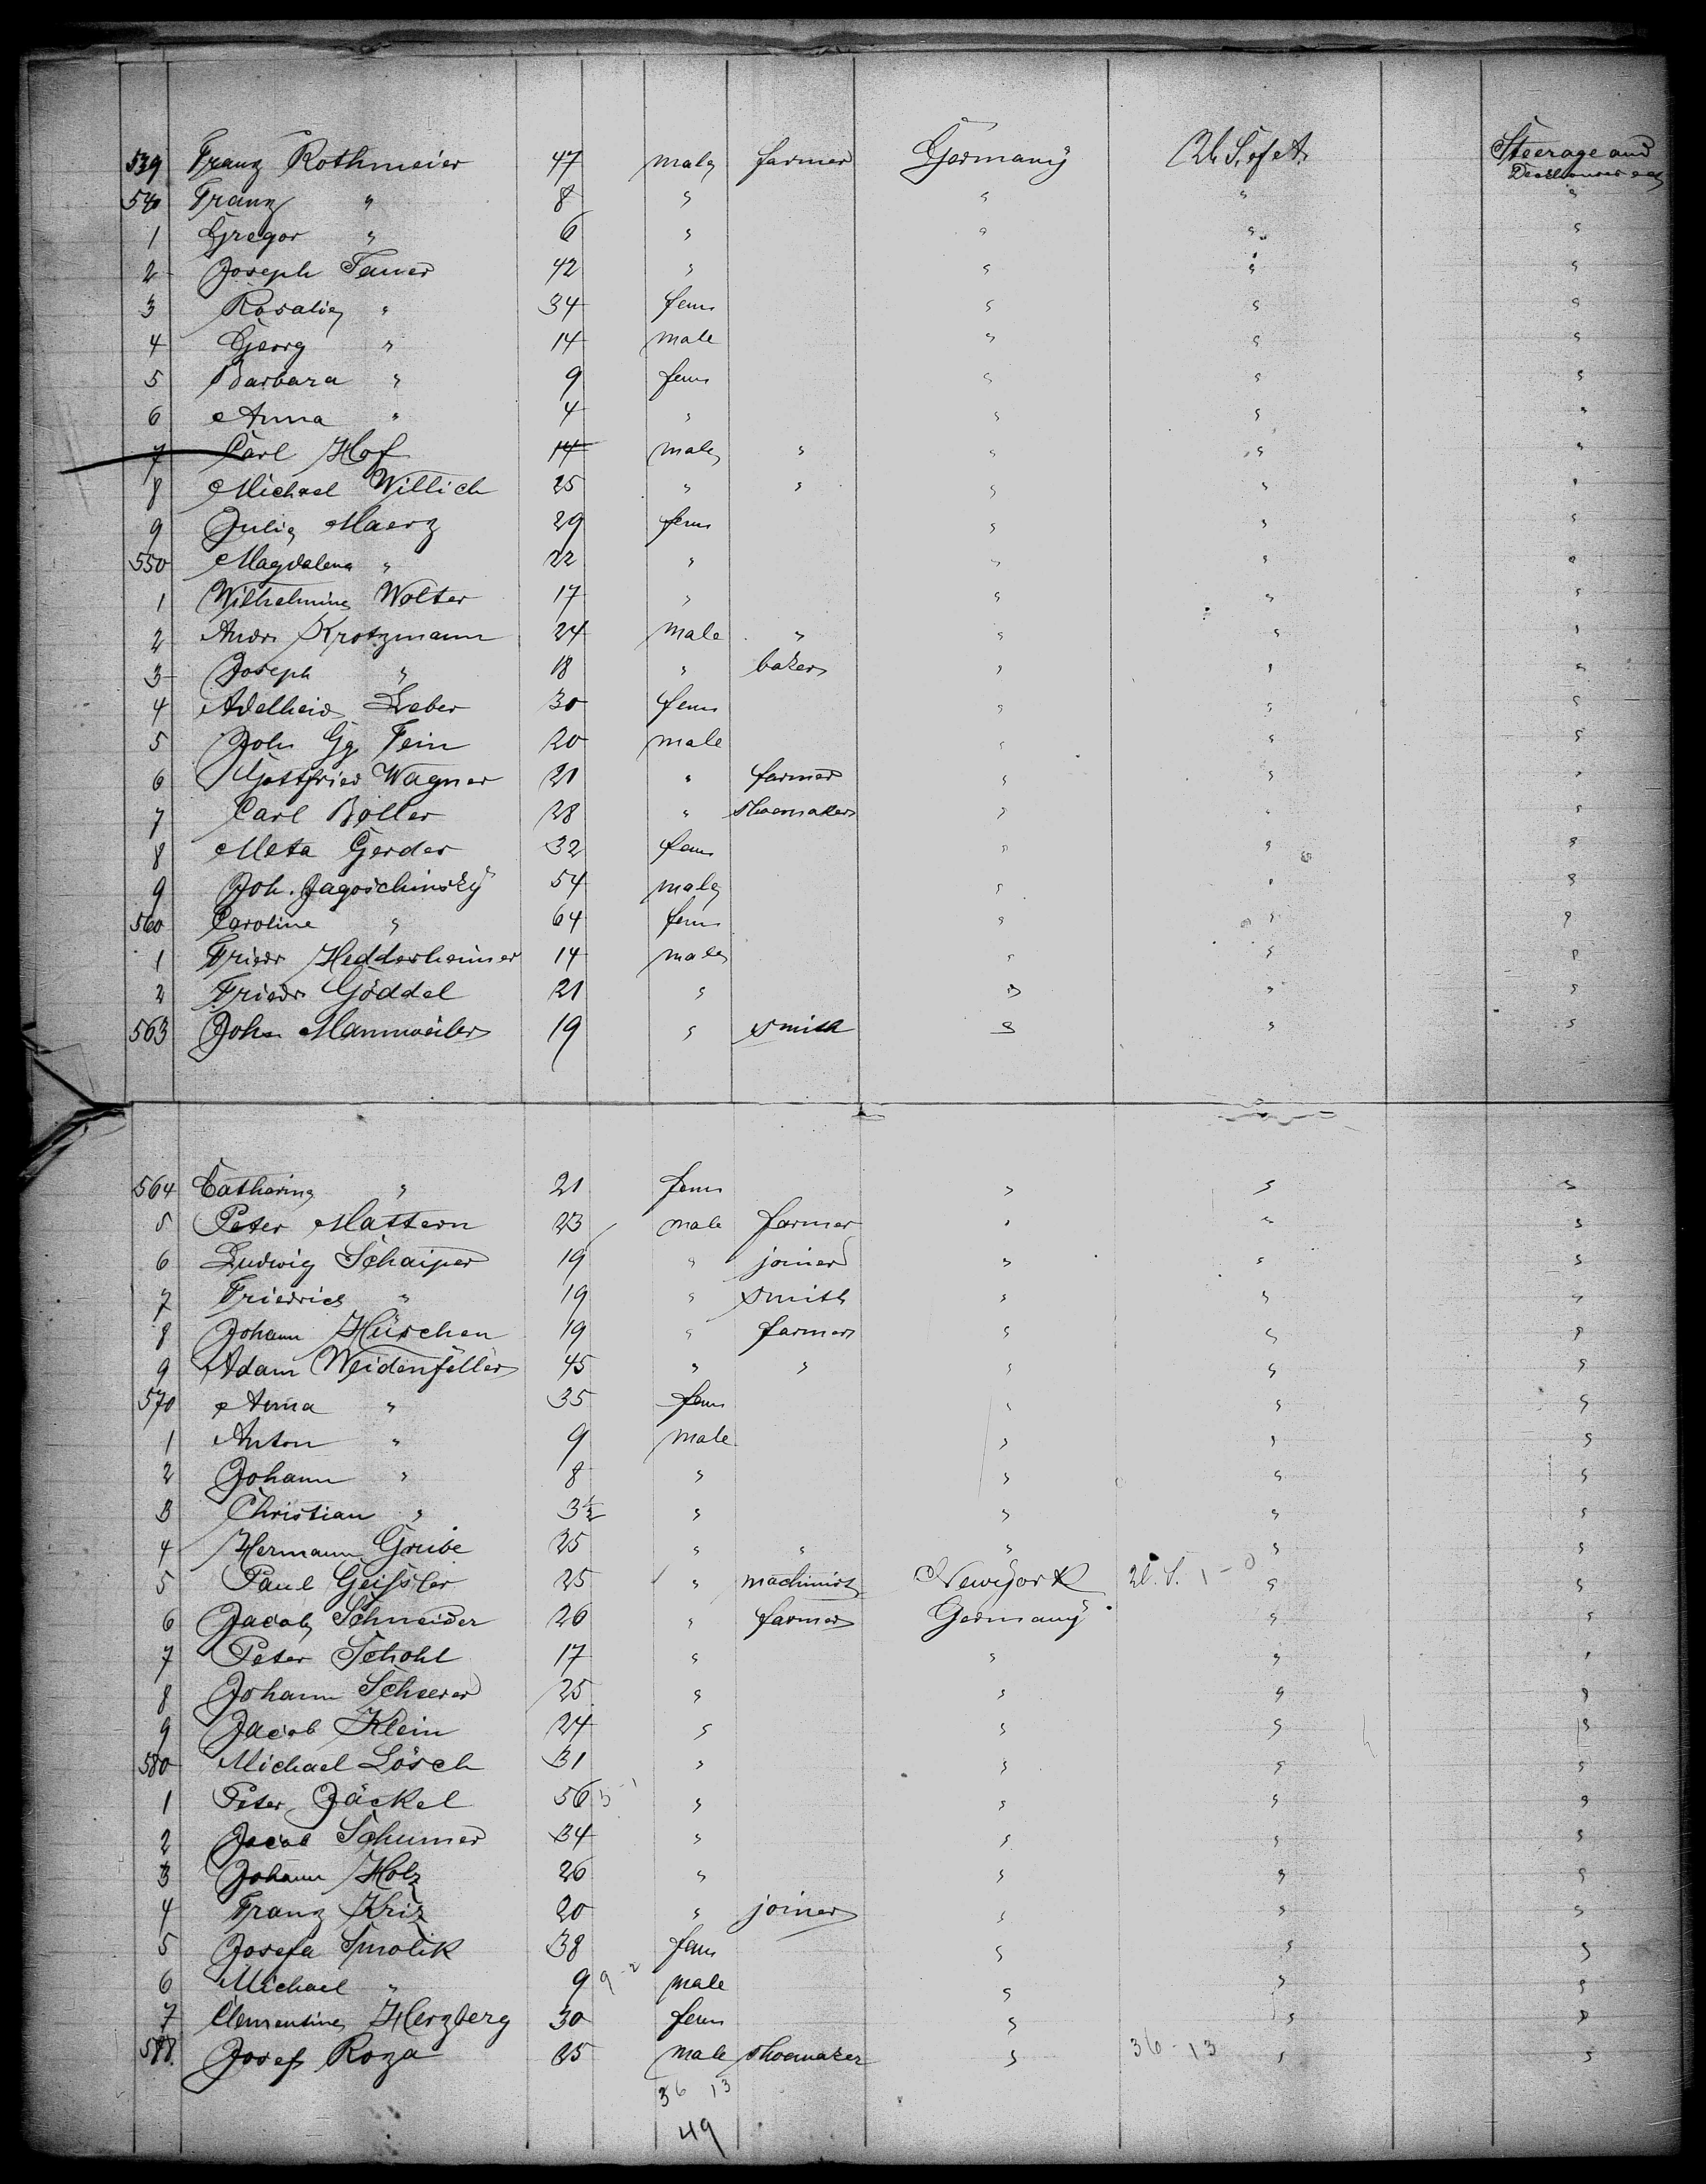 539 Franz Rothmeier 47 male farmer Germany U. S. of A. Steerage and
540 Franz " 8 " " " "
1 Gregor " 6 " " " "
2 Joseph Fauer 42 " " " "
3 Rosalie " 34 fem " " "
4 Georg " 14 male " " "
5 Barbara " 9 fem " " "
6 Anna " 4 " " " "
7 Carl Hof 14 male " " " "
8 Michael Willich 25 " " " " "
9 Julie Maerz 29 fem " " "
550 Magdalena " 22 " " " "
1 Wilhelmine Wolter 17 " " " "
2 Andr Krotzmann 24 male " " " "
3 Joseph " 18 " baker " " "
4 Adelheid Leber 30 fem " " "
5 Joh Gg Fein 20 male " " "
6 Gottfried Wagner 21 " farmer " " "
7 Carl Boller 28 " shoemaker " " "
8 Meta Gerder 32 fem " " "
9 Joh. Jagoschinsky 54 male " " "
560 Caroline " 64 fem " " "
1 Friedr Hedderheimer 14 male " " "
2 Friedr Göddel 21 " " " "
563 John Mannweiler 19 " smith " " "
564 Catharine " 21 fem " " "
5 Peter Mattern 23 male farmer " " "
6 Ludwig Schaiper 19 " joiner " " "
7 Friedrich " 19 " smith " " "
8 Johann Hüschen 19 " farmer " " "
9 Adam Weidenfeller 45 " " " " "
570 Anna " 35 fem " " "
1 Anton " 9 male " " "
2 Johann " 8 " " " "
3 Christian " 3½ " " " "
4 Hermann Grube 25 " " " " "
5 Paul Geißler 25 " machinist Newyork U. S. 1-0 " "
6 Jacob Schneider 26 " farmer Germany " "
7 Peter Schohl 17 " " " "
8 Johann Scherer 25 " " " "
9 Jacob Klein 24 " " " "
580 Michael Lösch 31 " " " "
1 Peter Jäckel 56 " " " "
2 Jacob Schumer 34 " " " "
3 Johann Holz 26 " " " "
4 Franz Kriz 20 " joiner " " "
5 Josefa Smolik 38 fem " " "
6 Michael " 9 male " " "
7 Clementine Herzberg 30 fem " " "
588. Josef Roza 25 male shoemaker " 36-13 " "
36 13
49